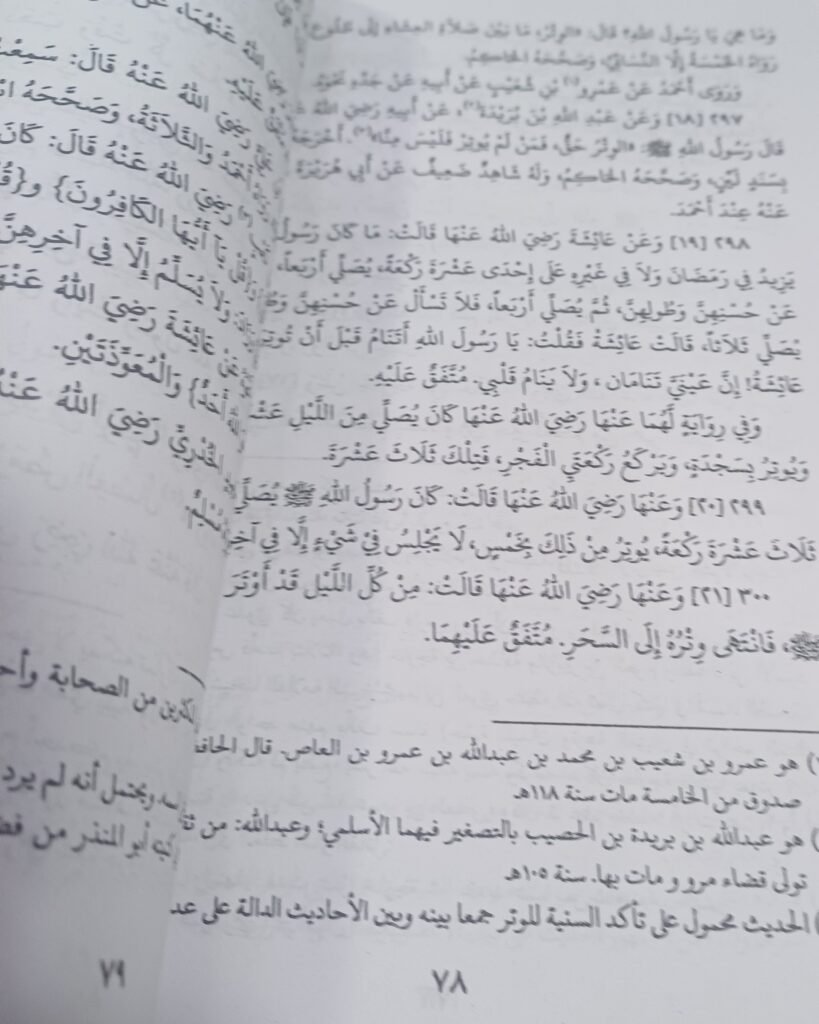 وَمَا هِيَ يَا رَسُولَ اللهِ؟ قَالَ: «الوِتْرُ، مَا بَيْنَ صَلَاةِ العِشَاءِ إِلَى طُلُوعِ
رَوَاهُ الخَمْسَةُ إِلَّا النَّسَائِيَّ، وَصَحَّحَهُ الحَاكِمُ.
وَرَوَى أَحْمَدُ عَنْ عَمْرِو(١) بْنِ شُعَيْبٍ عَنْ أَبِيهِ عَنْ جَدِّهِ نَحْوَهُ.
٢٩٧ [١٨] وَعَنْ عَبْدِ اللهِ بْنِ بُرَيْدَةَ(٢)، عَنْ أَبِيهِ رَضِيَ اللهُ
قَالَ رَسُولُ اللهِ ﷺ: «الوِتْرُ حَقٌّ، فَمَنْ لَمْ يُوتِرْ فَلَيْسَ مِنَّا»(٣). أَخْرَجَهُ
بِسَنَدٍ لَيِّنٍ، وَصَحَّحَهُ الحَاكِمُ، وَلَهُ شَاهِدٌ ضَعِيفٌ عَنْ أَبِي هُرَيْرَةَ
عَنْهُ عِنْدَ أَحْمَدَ.
٢٩٨ [١٩] وَعَنْ عَائِشَةَ رَضِيَ اللهُ عَنْهَا قَالَتْ: مَا كَانَ رَسُولُ
يَزِيدُ فِي رَمَضَانَ وَلَا فِي غَيْرِهِ عَلَى إِحْدَى عَشْرَةَ رَكْعَةً، يُصَلِّي أَرْبَعاً،
عَنْ حُسْنِهِنَّ وَطُولِهِنَّ، ثُمَّ يُصَلِّي أَرْبَعاً، فَلَا تَسْأَلْ عَنْ حُسْنِهِنَّ
يُصَلِّي ثَلَاثاً، قَالَتْ عَائِشَةُ فَقُلْتُ: يَا رَسُولَ اللهِ أَتَنَامُ قَبْلَ أَنْ تُوتِرَ
عَائِشَةُ! إِنَّ عَيْنَيَّ تَنَامَانِ، وَلَا يَنَامُ قَلْبِي. مُتَّفَقٌ عَلَيْهِ.
وَفِي رِوَايَةٍ لَهُمَا عَنْهَا رَضِيَ اللهُ عَنْهَا كَانَ يُصَلِّي مِنَ اللَّيْلِ
وَيُوتِرُ بِسَجْدَةٍ، وَيَرْكَعُ رَكْعَتَيِ الْفَجْرِ، فَتِلْكَ ثَلَاثَ عَشْرَةَ.
٢٩٩ [٢٠] وَعَنْهَا رَضِيَ اللهُ عَنْهَا قَالَتْ: كَانَ رَسُولُ اللهِ ﷺ يُصَلِّي
ثَلَاثَ عَشْرَةَ رَكْعَةً، يُوتِرُ مِنْ ذَلِكَ بِخَمْسٍ، لَا يَجْلِسُ فِيْ شَيْءٍ إِلَّا فِي
٣٠٠ [٢١] وَعَنْهَا رَضِيَ اللهُ عَنْهَا قَالَتْ: مِنْ كُلِّ اللَّيْلِ قَدْ أَوْتَرَ
ﷺ، فَانْتَهَى وِتْرُهُ إِلَى السَّحَرِ. مُتَّفَقٌ عَلَيْهِمَا.
هو عمرو بن شعيب بن محمد بن عبدالله بن عمرو بن العاص. قال
صدوق من الخامسة مات سنة ١١٨هـ
هو عبدالله بن بريدة بن الحصيب بالتصغير فيهما الأسلمي؛ وعبدالله: من
تولى قضاء مرو ومات بها. سنة ١٠٥هـ
الحديث محمول على تأكد السنية للوتر جمعا بينه وبين الأحاديث الدالة على
٧٨
اللهُ عَنْهُمَا،
رَضِيَ اللهُ عَنْهُ قَالَ:
وَالثَّلَاثَةُ، وَصَحَّحَهُ
رَضِيَ اللهُ عَنْهُ قَالَ: كَانَ
يَا أَيُّهَا الكَافِرُونَ}
وَلَا يُسَلِّمُ إِلَّا فِي آخِرِهِنَّ
عَائِشَةَ رَضِيَ اللهُ
أَحَدٌ} وَالْمُعَوَّذَتَيْنِ.
الخُدْرِيِّ رَضِيَ اللهُ
من الصحابة
ويحتمل أنه لم يرد
أبو المنذر من
٧٩